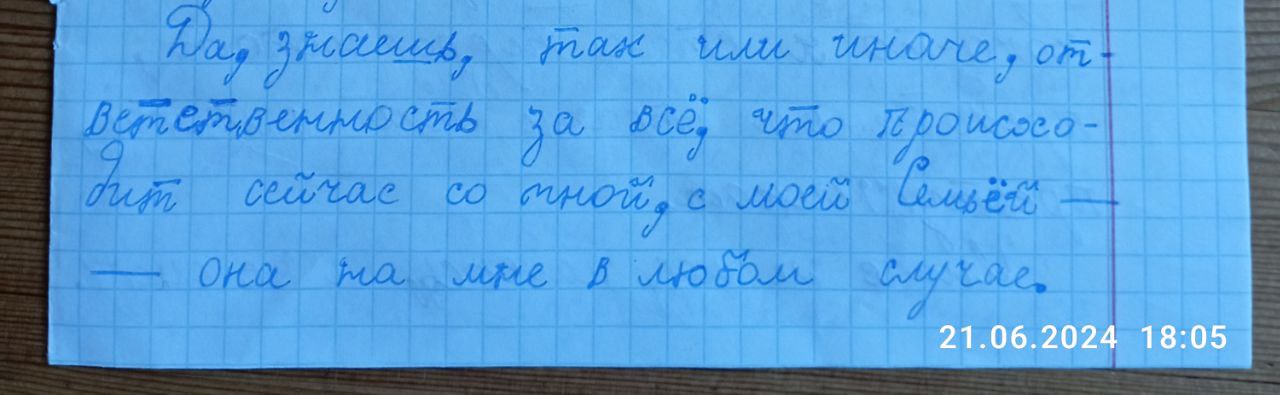 Да, знаешь, так или иначе, от-
ветственность за всё, что происхо-
дит сейчас со мной, с моей Семьёй —
— она на мне в любом случае.
21.06.2024 18:05